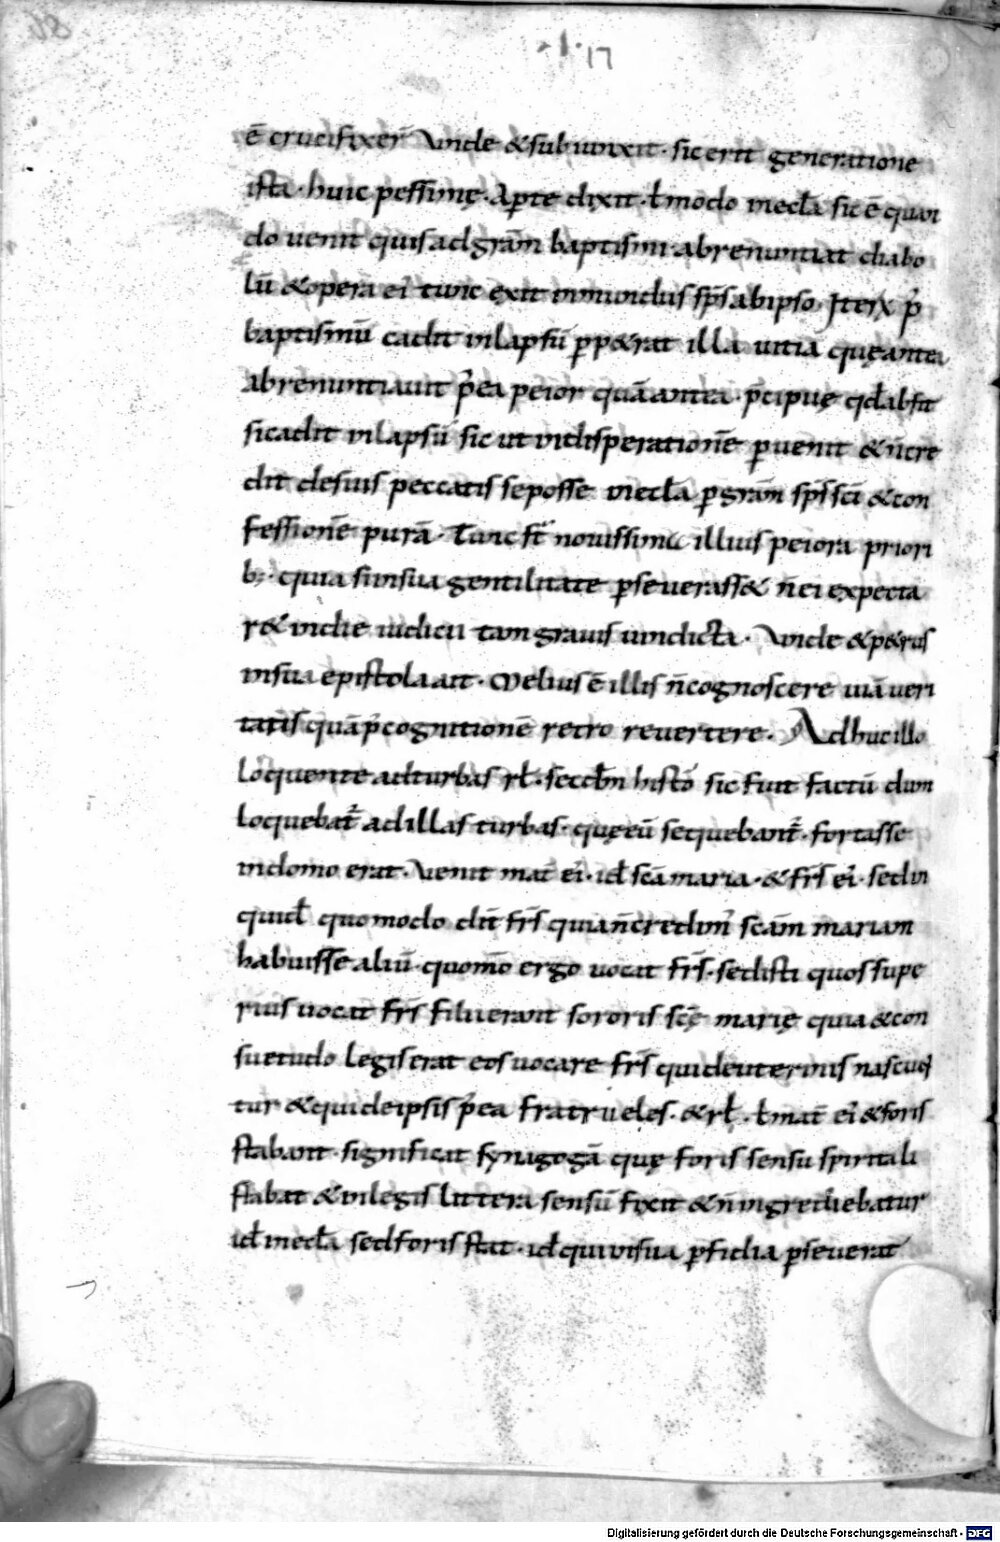 ·I· 17
ē crucifixer̄ Unde & subiunxit · sic erit generatione
ista · huic pessimę · Aperte dixit · ł modo in eccl̄a sic ē quan
do uenit quis ad grām baptismi · abrenuntiat diabo
lū & opera ei᾽ tunc exit inmundus sp̄s ab ipso Iterū p᾽
baptismū cadit in lapsū ꝑp&rat illa uitia quę antea
abrenuntiauit p᾽ea peior quā antea · p̄cipuę qđ absit
si cadit in lapsū sic ut in disperationē ꝑuenit & n̄ cre
dit de suis peccatis se posse in eccl̄a ꝑ grām sp̄s sc̄i & con
fessionē purā · Tunc s̄t nouissima illius peiora priori
b; · quia si in sua gentilitate ꝑseuerass& n̄ ei expecta
r& in die iudicii tam grauis uindicta · Unde & p&rus
in sua epistola ait · Melius ē illis n̄ cognoscere uiā ueri
tatis quā p᾽ cognitionē retro reuertere. Adhuc illo
loquente ad turbas rł · secđm histo᷒ sic fuit factū dum
loquebat᷒ ad illas turbas · quę eū sequebant᷒ · fortasse
in domo erat · Uenit mat̄ ei᾽ · iđ sc̄a maria · & fr̄s ei᾽ · sed in
quid᷒ quomodo dn̄ fr̄s quia n̄ credim᾽ sc̄am mariam
habuisse aliū · quom̄o ergo uocat fr̄s · sed isti quos supe
rius uocat fr̄s filii erant sororis sc̄ę marię quia & con
suetudo legis erat eos uocare fr̄s qui de uterinis nascun
tur & qui de ipsis p᾽ea fratrueles · & rł · ł mat̄ ei᾽ & foris
stabant · significat synagogā quę foris sensu spiritali
stabat & in legis littera sensū fixit & n̄ ingrediebatur
iđ in eccl̄a sed foris stat · iđ qui in sua ꝑfidia ꝑseuerat
Digitalisierung gefördert durch die Deutsche Forschungsgemeinschaft - DFG